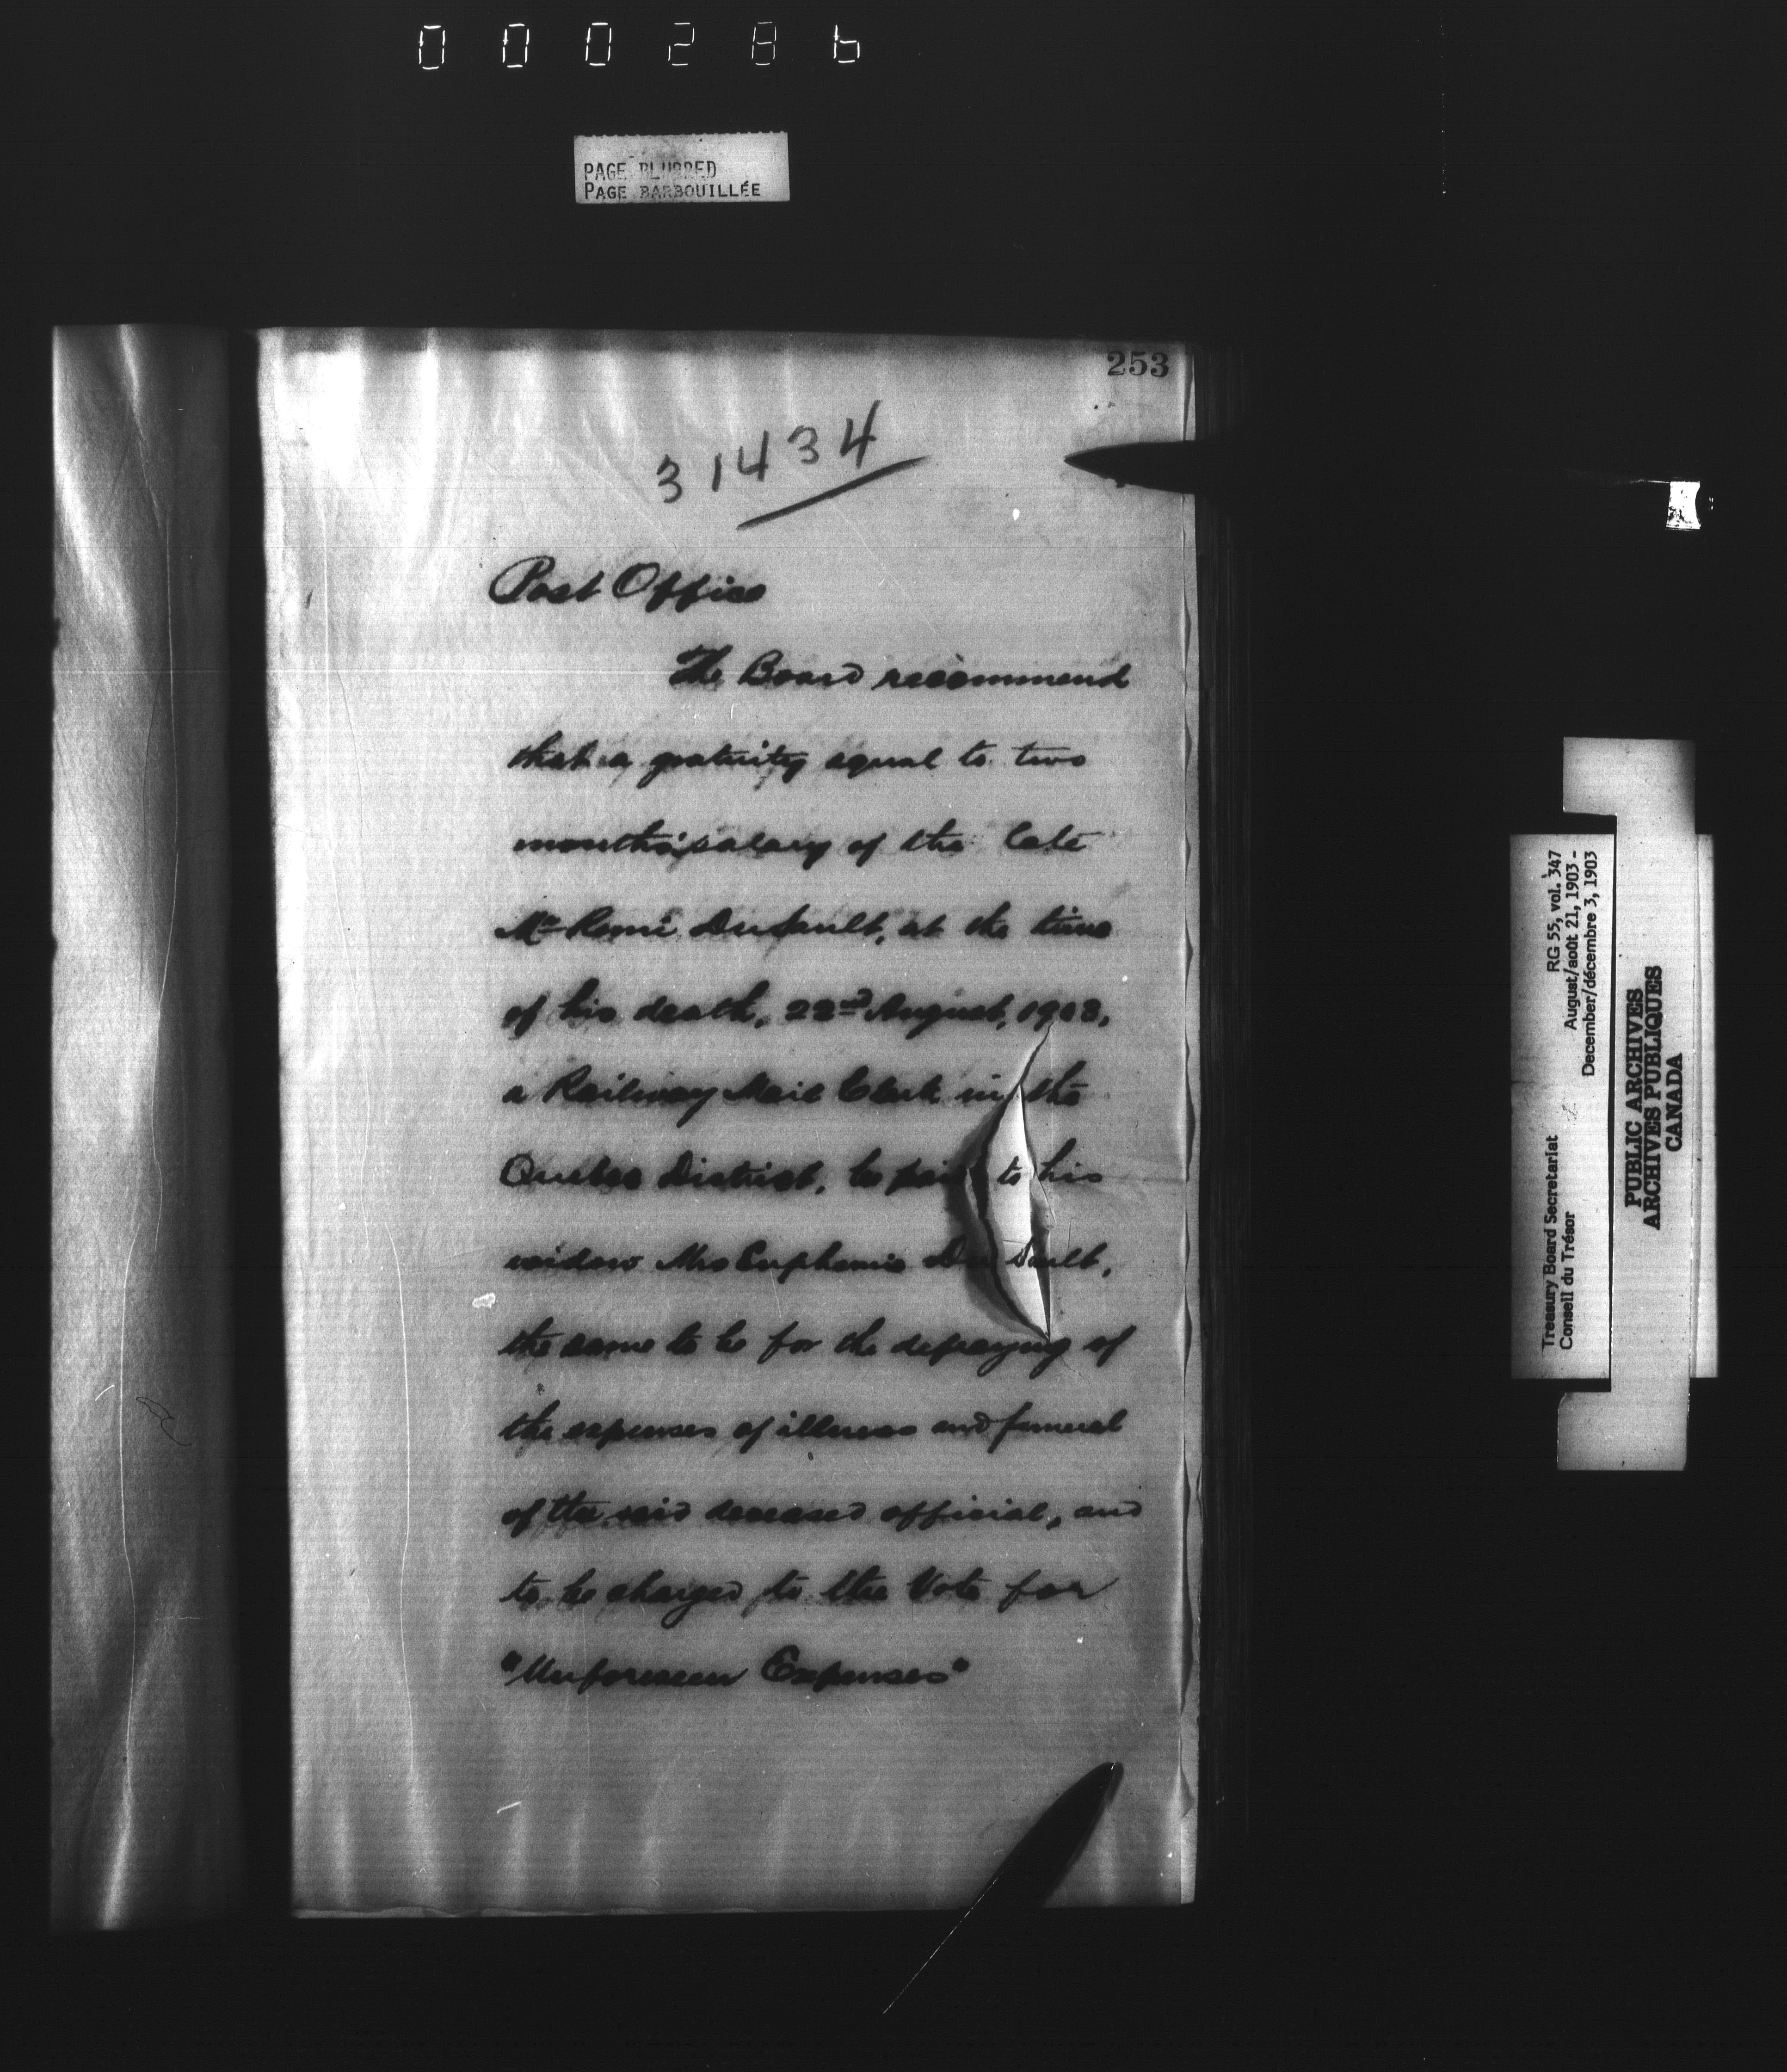 000286
PAGE BLURRED
PAGE BARBOUILLÉE
253
31434
Post Office
The Board recommend
that a gratuity equal to two
months' salary of the late
Mr Remi Dusault, at the time
of his death, 22nd August, 1903,
a Railway Mail Clerk in the
Quebec District, be paid to his
widow Mrs Euphemie Dusault,
the same to be for the defraying of
the expenses of illness and funeral
of the said deceased official, and
to be charged to the Vote for
"Unforeseen Expenses"
Treasury Board Secretariat RG 55, vol. 347
Conseil du Trésor August/août 21, 1903 -
December/décembre 3, 1903
PUBLIC ARCHIVES
ARCHIVES PUBLIQUES
CANADA